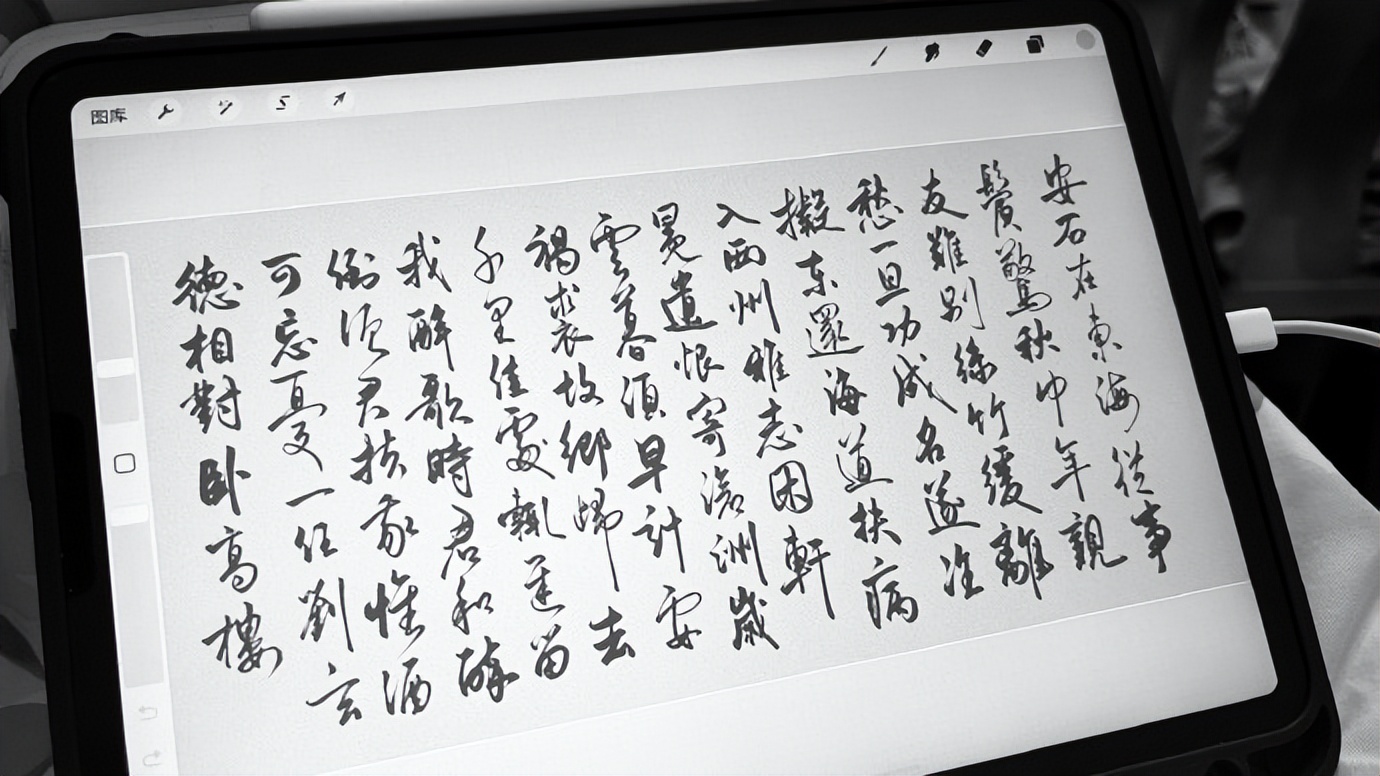 图库
安石在東海從事
鬢驚秋中年親
友難別絲竹緩離
愁一旦功成名遂准
擬東還海道扶病
入西州雅志困軒
冕遺恨寄滄洲歲
雲暮須早計要
褐裘故鄉歸去
千里佳處輒遲留
我醉歌時君和醉
倒須君扶我惟酒
可忘憂一任劉玄
德相對卧高樓